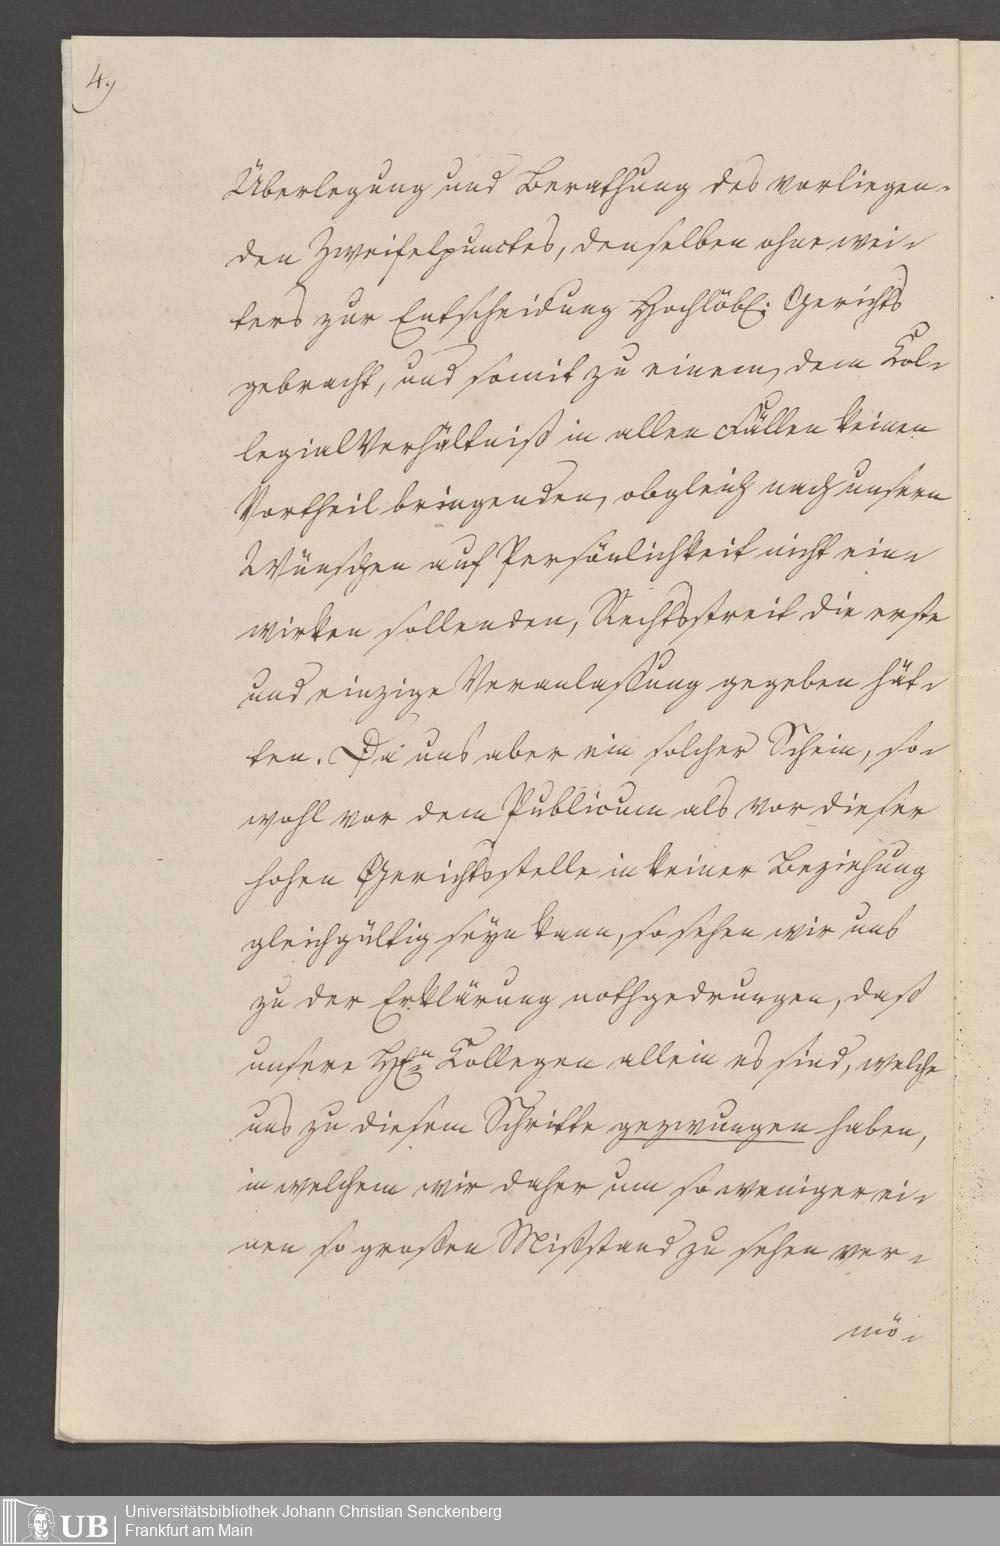 4.)
Überlegung und Berathung des vorliegen-
den Zweifelpunctes, denselben ohne wei-
ters zur Entscheidung Hochlöbl: Gerichts
gebracht, und somit zu einem, dem Col-
legialVerhältniß in allen Fällen keinen
Vortheil bringenden, obgleich nach unsern
Wünschen auf Persönlichkeit nicht ein-
wirken sollenden, Rechtsstreit die erste
und einzige Veranlaßung gegeben hät-
ten. Da uns aber ein solcher Schein, so-
wohl vor dem Publicum als vor dieser
hohen Gerichtsstelle in keiner Beziehung
gleichgültig seyn kann, so sehen wir uns
zu der Erklärung nothgedrungen, daß
unsere HEn Collegen allein es sind, welche
uns zu diesem Schritte gezwungen haben,
in welchem wir daher um so weniger ei-
nen so großen Mißstand zu sehen ver-
mö-
UB
Universitätsbibliothek Johann Christian Senckenberg
Frankfurt am Main